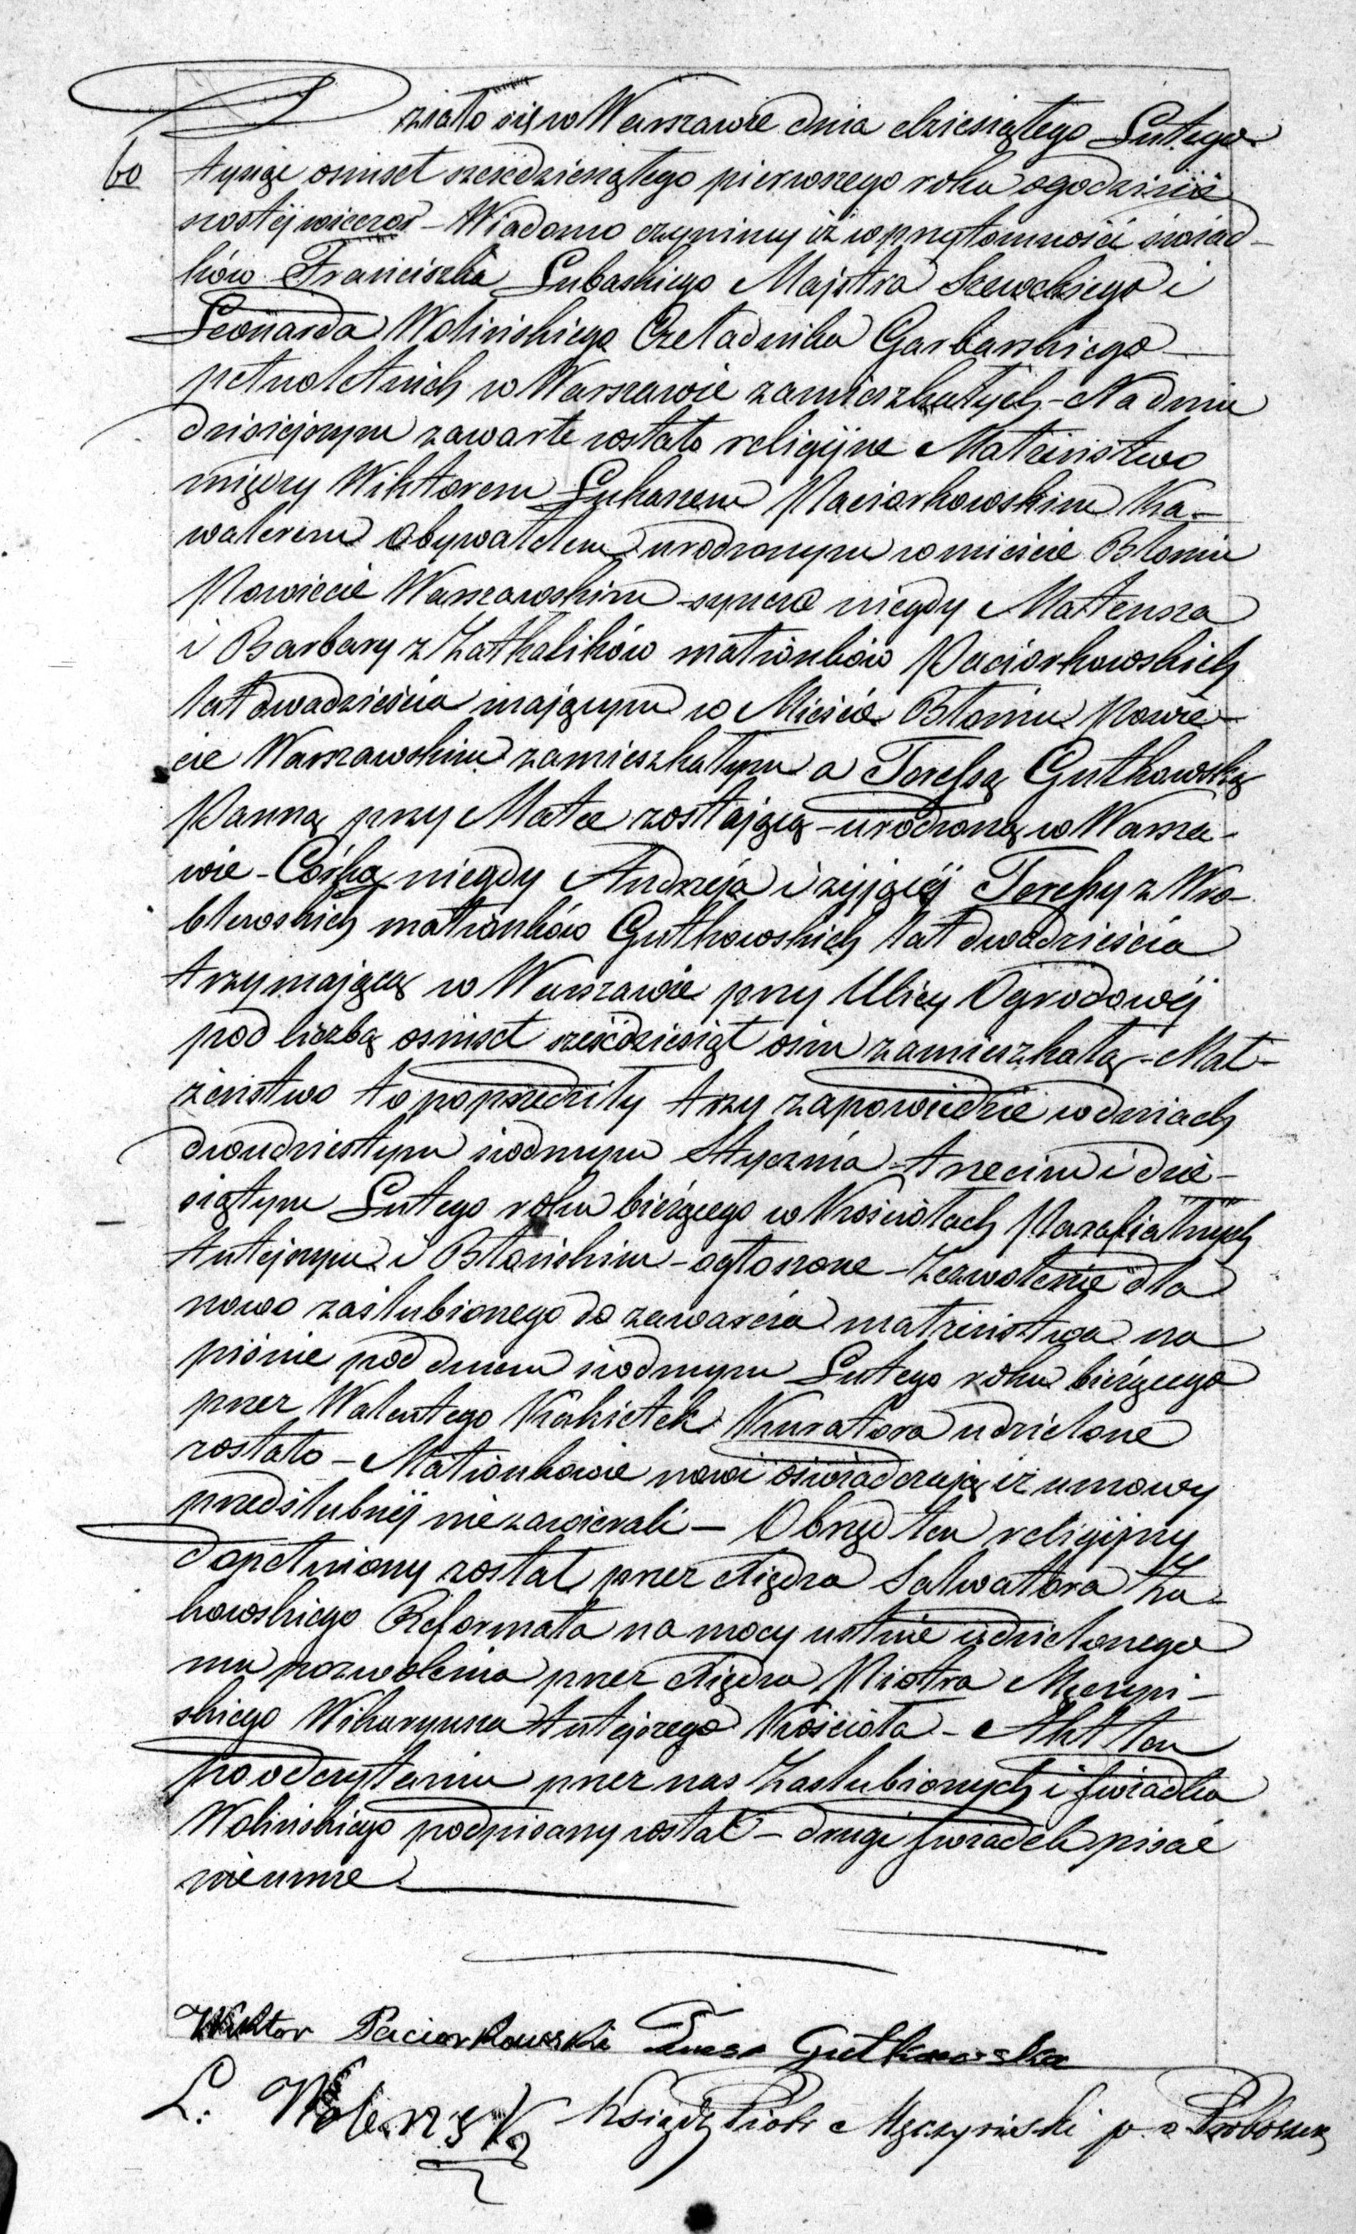 Działo się w Warszawie dnia dziesiątego Lutego
60
tysiąc ośmset sześćdziesiątego pierwszego roku o godzinie
szostéj wieczor – Wiadomo czynimy iż w przytomności świad-
ków Franciszka Lubaskiego Majstra Szewckiego i
Leonarda Wolińskiego Czeladnika Garbarskiego –
pełnoletnich w Warszawie zamieszkałych – Na dniu
dzisiejszym zawarte zostało religijne Małżeństwo
między Wiktorem Łukaszem Paciorkowskim Ka-
walerem Obywatelem urodzonym w mieście Błoniu
Powiecie Warszawskim synem niegdy Mateusza
i Barbary z małżonków Paciorkowskich
lat dwadzieścia mającym w Mieście Błoniu Powie-
cie Warszawskim zamieszkałym a Teressą Gutkowską
Panną przy Matce zostającą – urodzoną w Warsza-
wie – Córką niegdy Andrzeja i żyjącéj Teressy z Wró-
blewskich małżonków Gutkowskich lat dwadzieścia
trzy mającą w Warszawie przy Ulicy Ogrodowéj
pod liczbą ośmset sześćdziesiąt ośm zamieszkałą – Mał-
żeństwo to poprzedziły trzy zapowiedzie w dniach
dwudziestym siodmym Stycznia – trzecim i dzie-
siątym Lutego roku bieżącego w Kościołach Parafialnych
tutejszym i Błońskim – ogłoszone – Zezwolenie dla
nowo zaślubionego do zawarcia małżeństwa na
piśmie pod dniem siodmym Lutego roku bieżącego
przez Walentego Kuratora udzielone
zostało – Małżonkowie nowi oświadczają iż umowy
przedślubnéj niezawierali – Obrzęd ten religijny
dopełniony został przez Xiędza Salwatora Żu-
kowskiego Reformata na mocy ustnie udzielonego
mu pozwolenia przez Xiędza Piotra Męczyń-
skiego Wikaryusza tutejszego Kościoła – Akt ten
po odczytaniu przez nas Zaślubionych i świadka
Wolińskiego podpisany został – drugi świadek pisać
nieumie
Wiktor Paciorkowski Teresa Gutkowska
L. Wolenski Ksiądz Piotr Męczyński p. o. Proboszcza